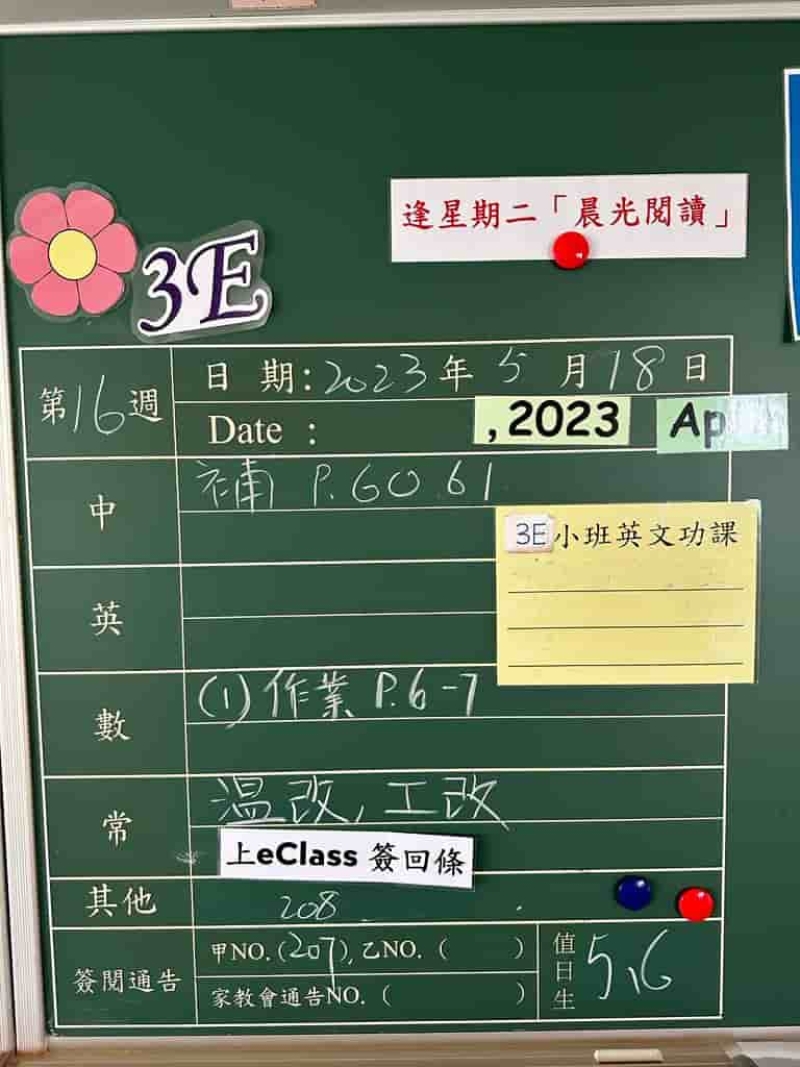 逢星期二「晨光閱讀」
3E
第16週
日 期：2023年 5 月18日
Date :
, 2023
中
補 P.60 61
3E小班英文功課
英
數
(1) 作業 P.6-7
常
温改, 工改
上eClass 簽回條
其他
208
簽閱通告
甲NO.(207),乙NO.( )
家教會通告NO.( )
值日生
5,6